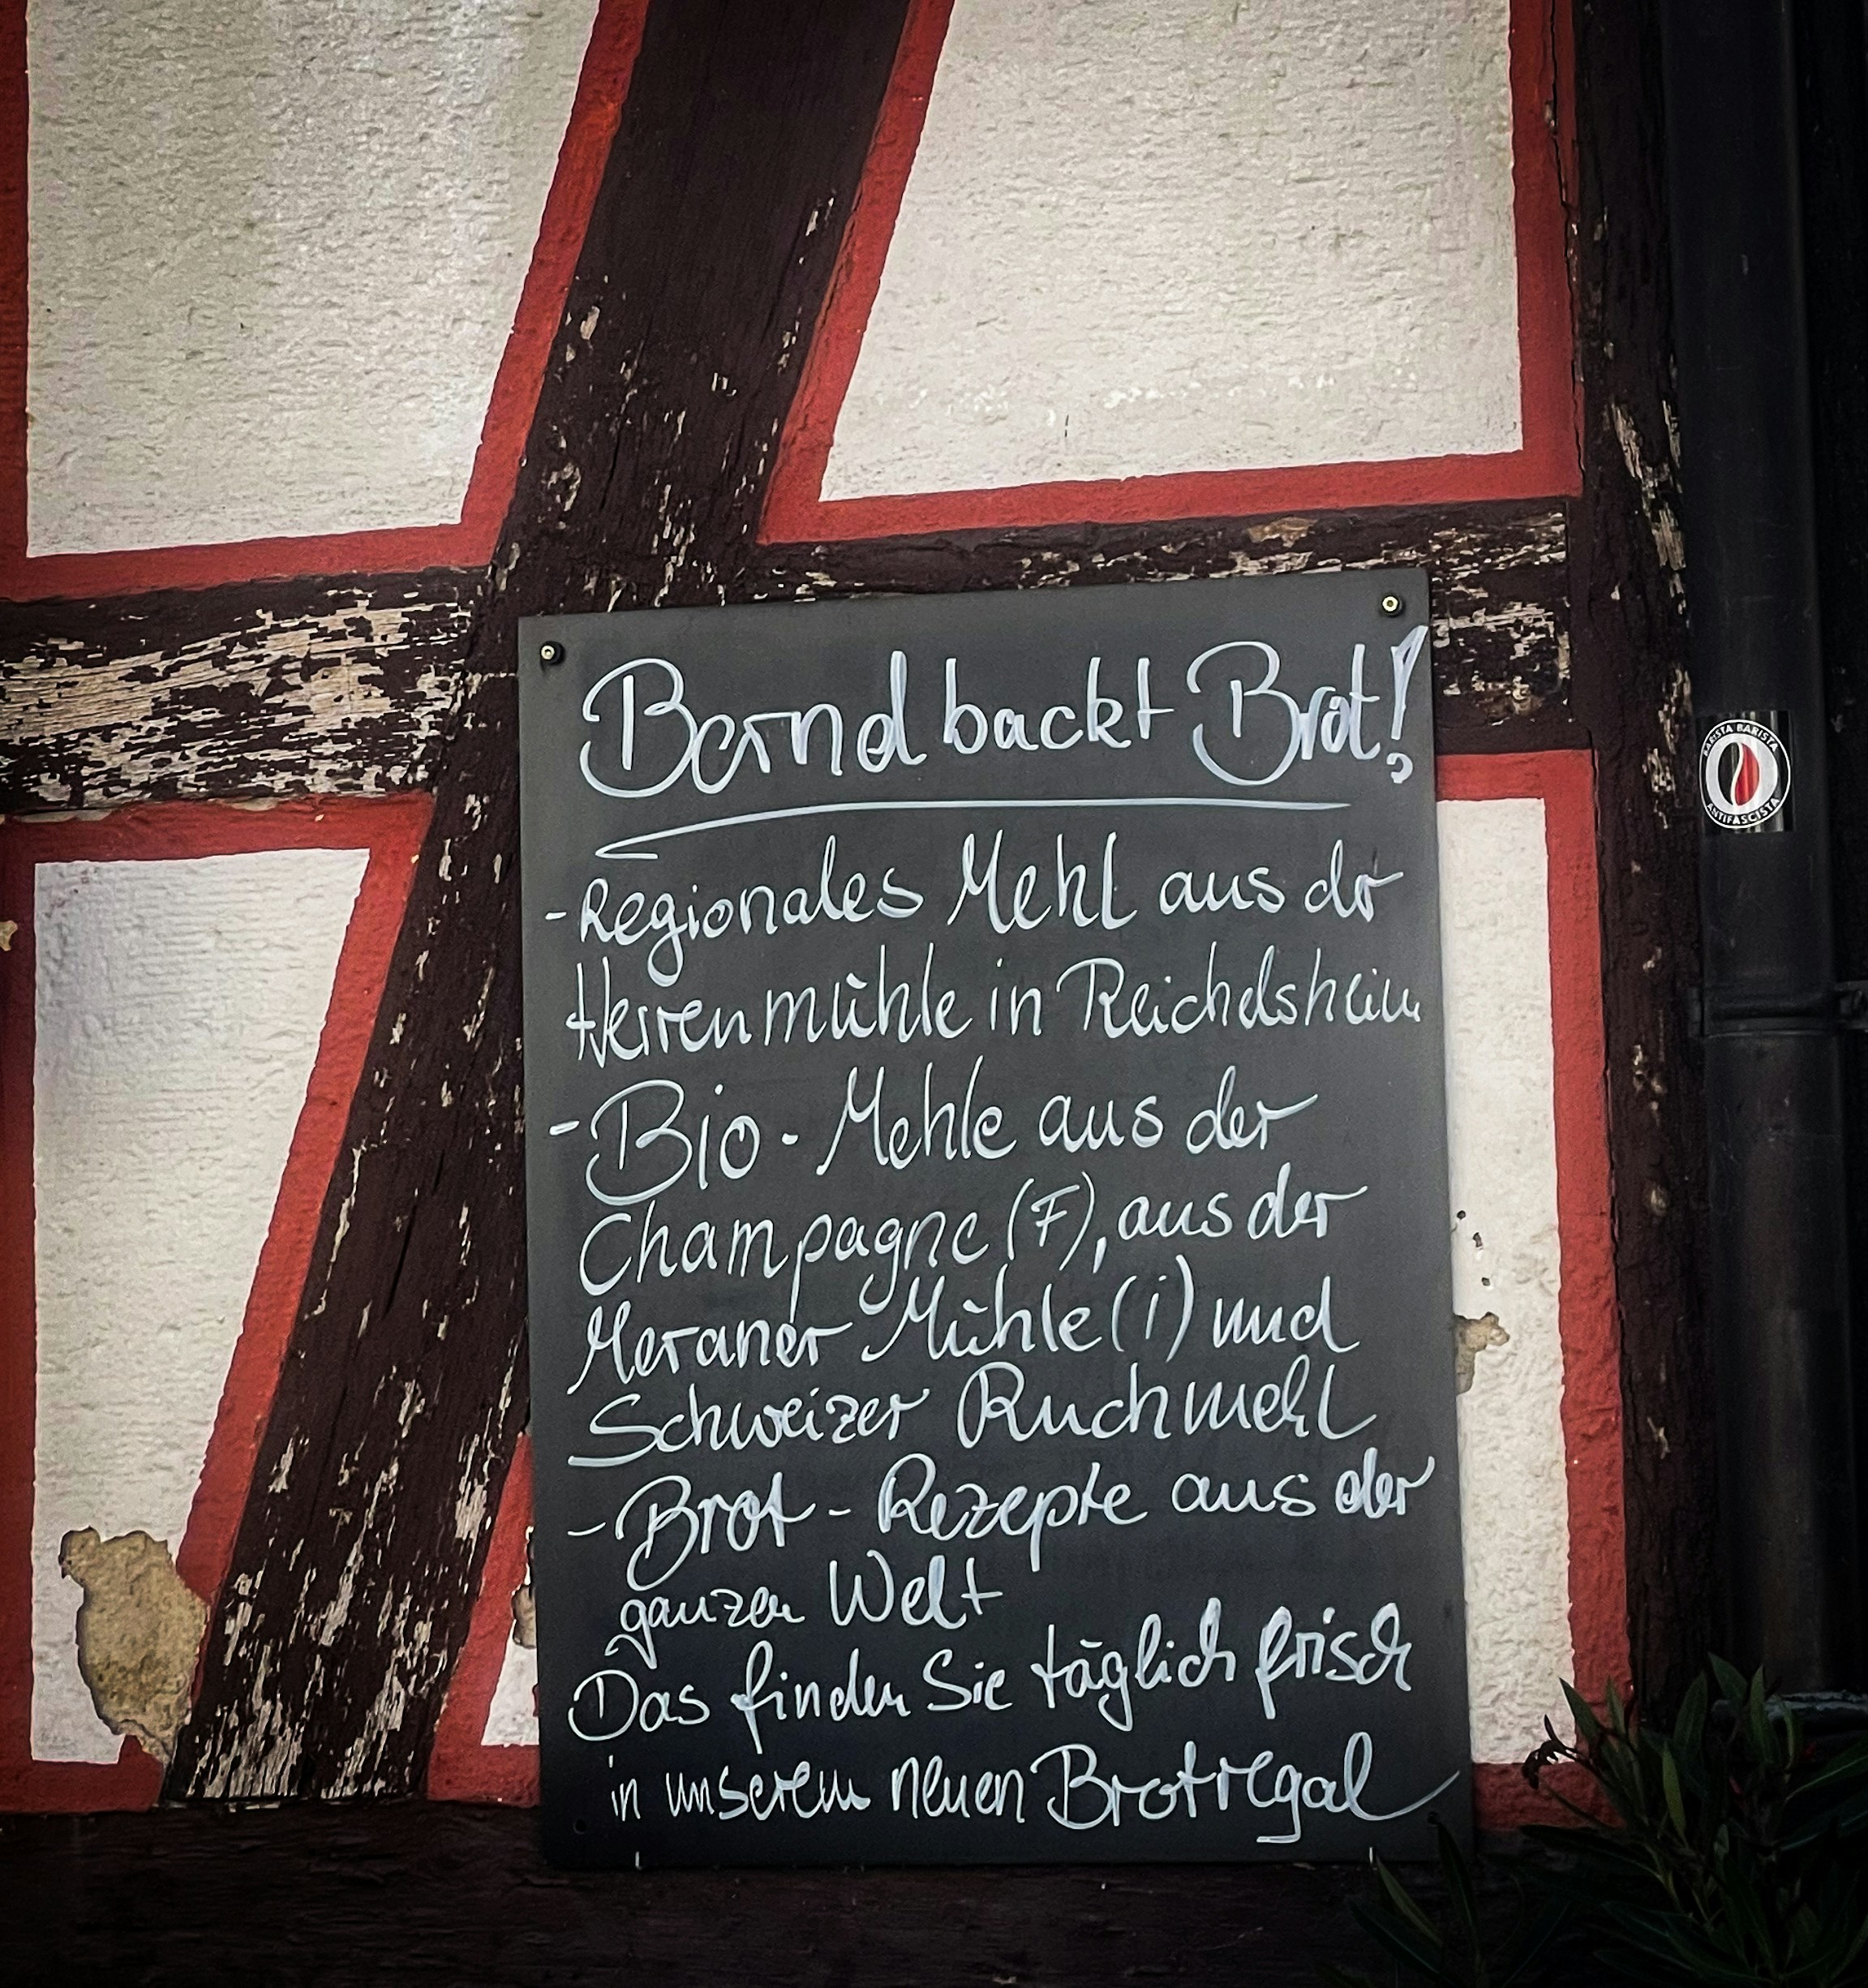 Bernd backt Brot!
- Regionales Mehl aus der
Herrenmühle in Reichelsheim
- Bio - Mehle aus der
Champagne (F), aus der
Meraner Mühle (i) und
Schweizer Ruchmehl
- Brot - Rezepte aus der
ganzen Welt
Das finden Sie täglich frisch
in unserem neuen Brotregal
BARISTA BARISTA
ANTIFASCISTA